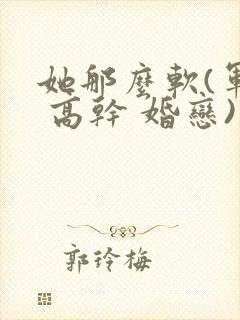 她那麼軟(軍
高幹 婚戀)
郭玲梅